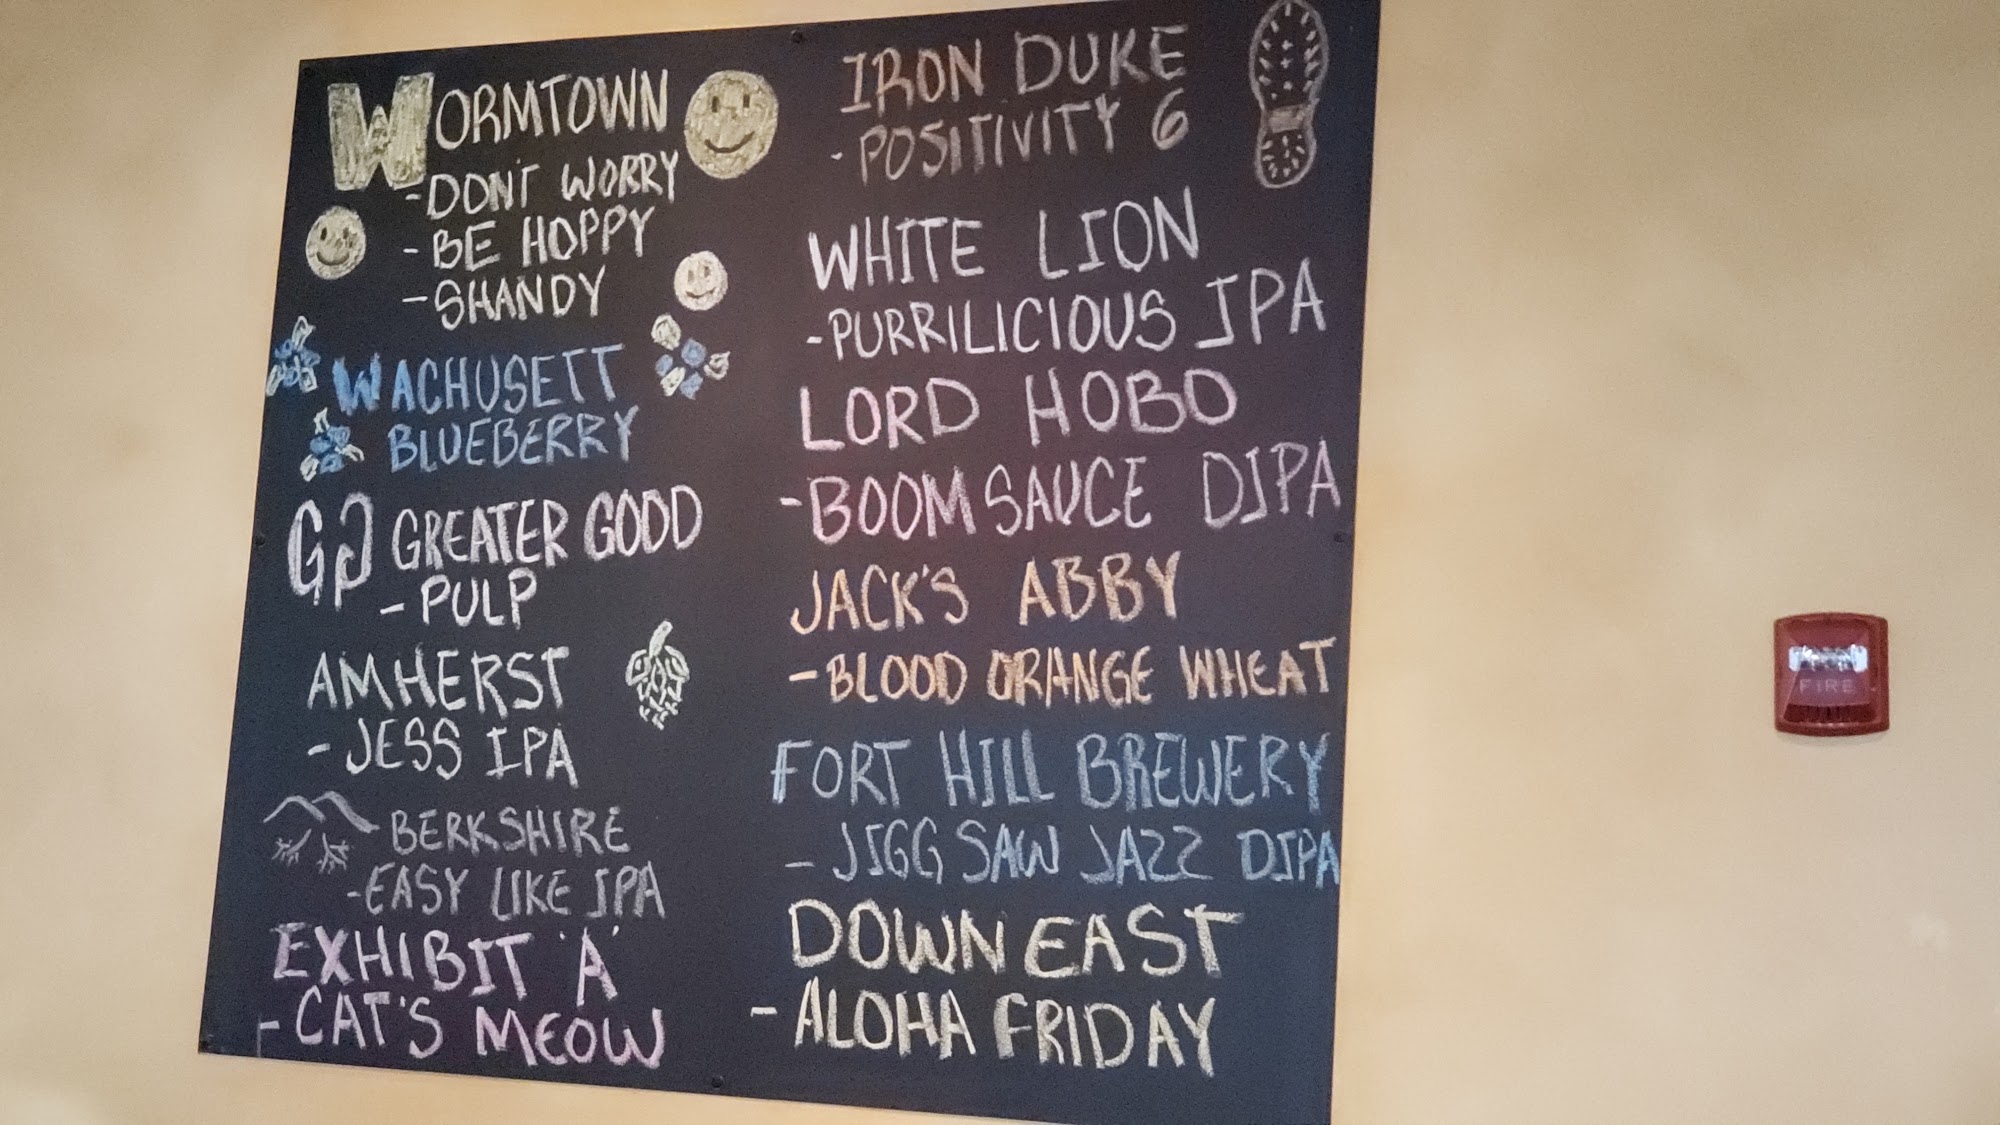 WORMTOWN
-DON'T WORRY
-BE HOPPY
-SHANDY
WACHUSETT
BLUEBERRY
GG GREATER GOOD
-PULP
AMHERST
-JESS IPA
BERKSHIRE
-EASY LIKE IPA
EXHIBIT 'A'
-CAT'S MEOW
IRON DUKE
-POSITIVITY 6
WHITE LION
-PURRILICIOUS IPA
LORD HOBO
-BOOMSAUCE DIPA
JACK'S ABBY
-BLOOD ORANGE WHEAT
FORT HILL BREWERY
-JIGG SAW JAZZ DIPA
DOWN EAST
-ALOHA FRIDAY
FIRE